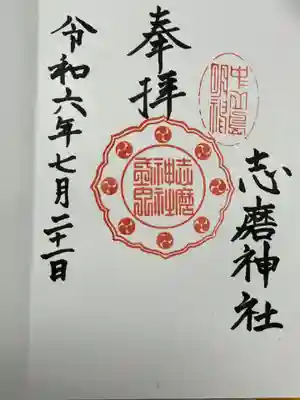 志磨神社
奉拝
志磨
神社
令和六年七月二十一日